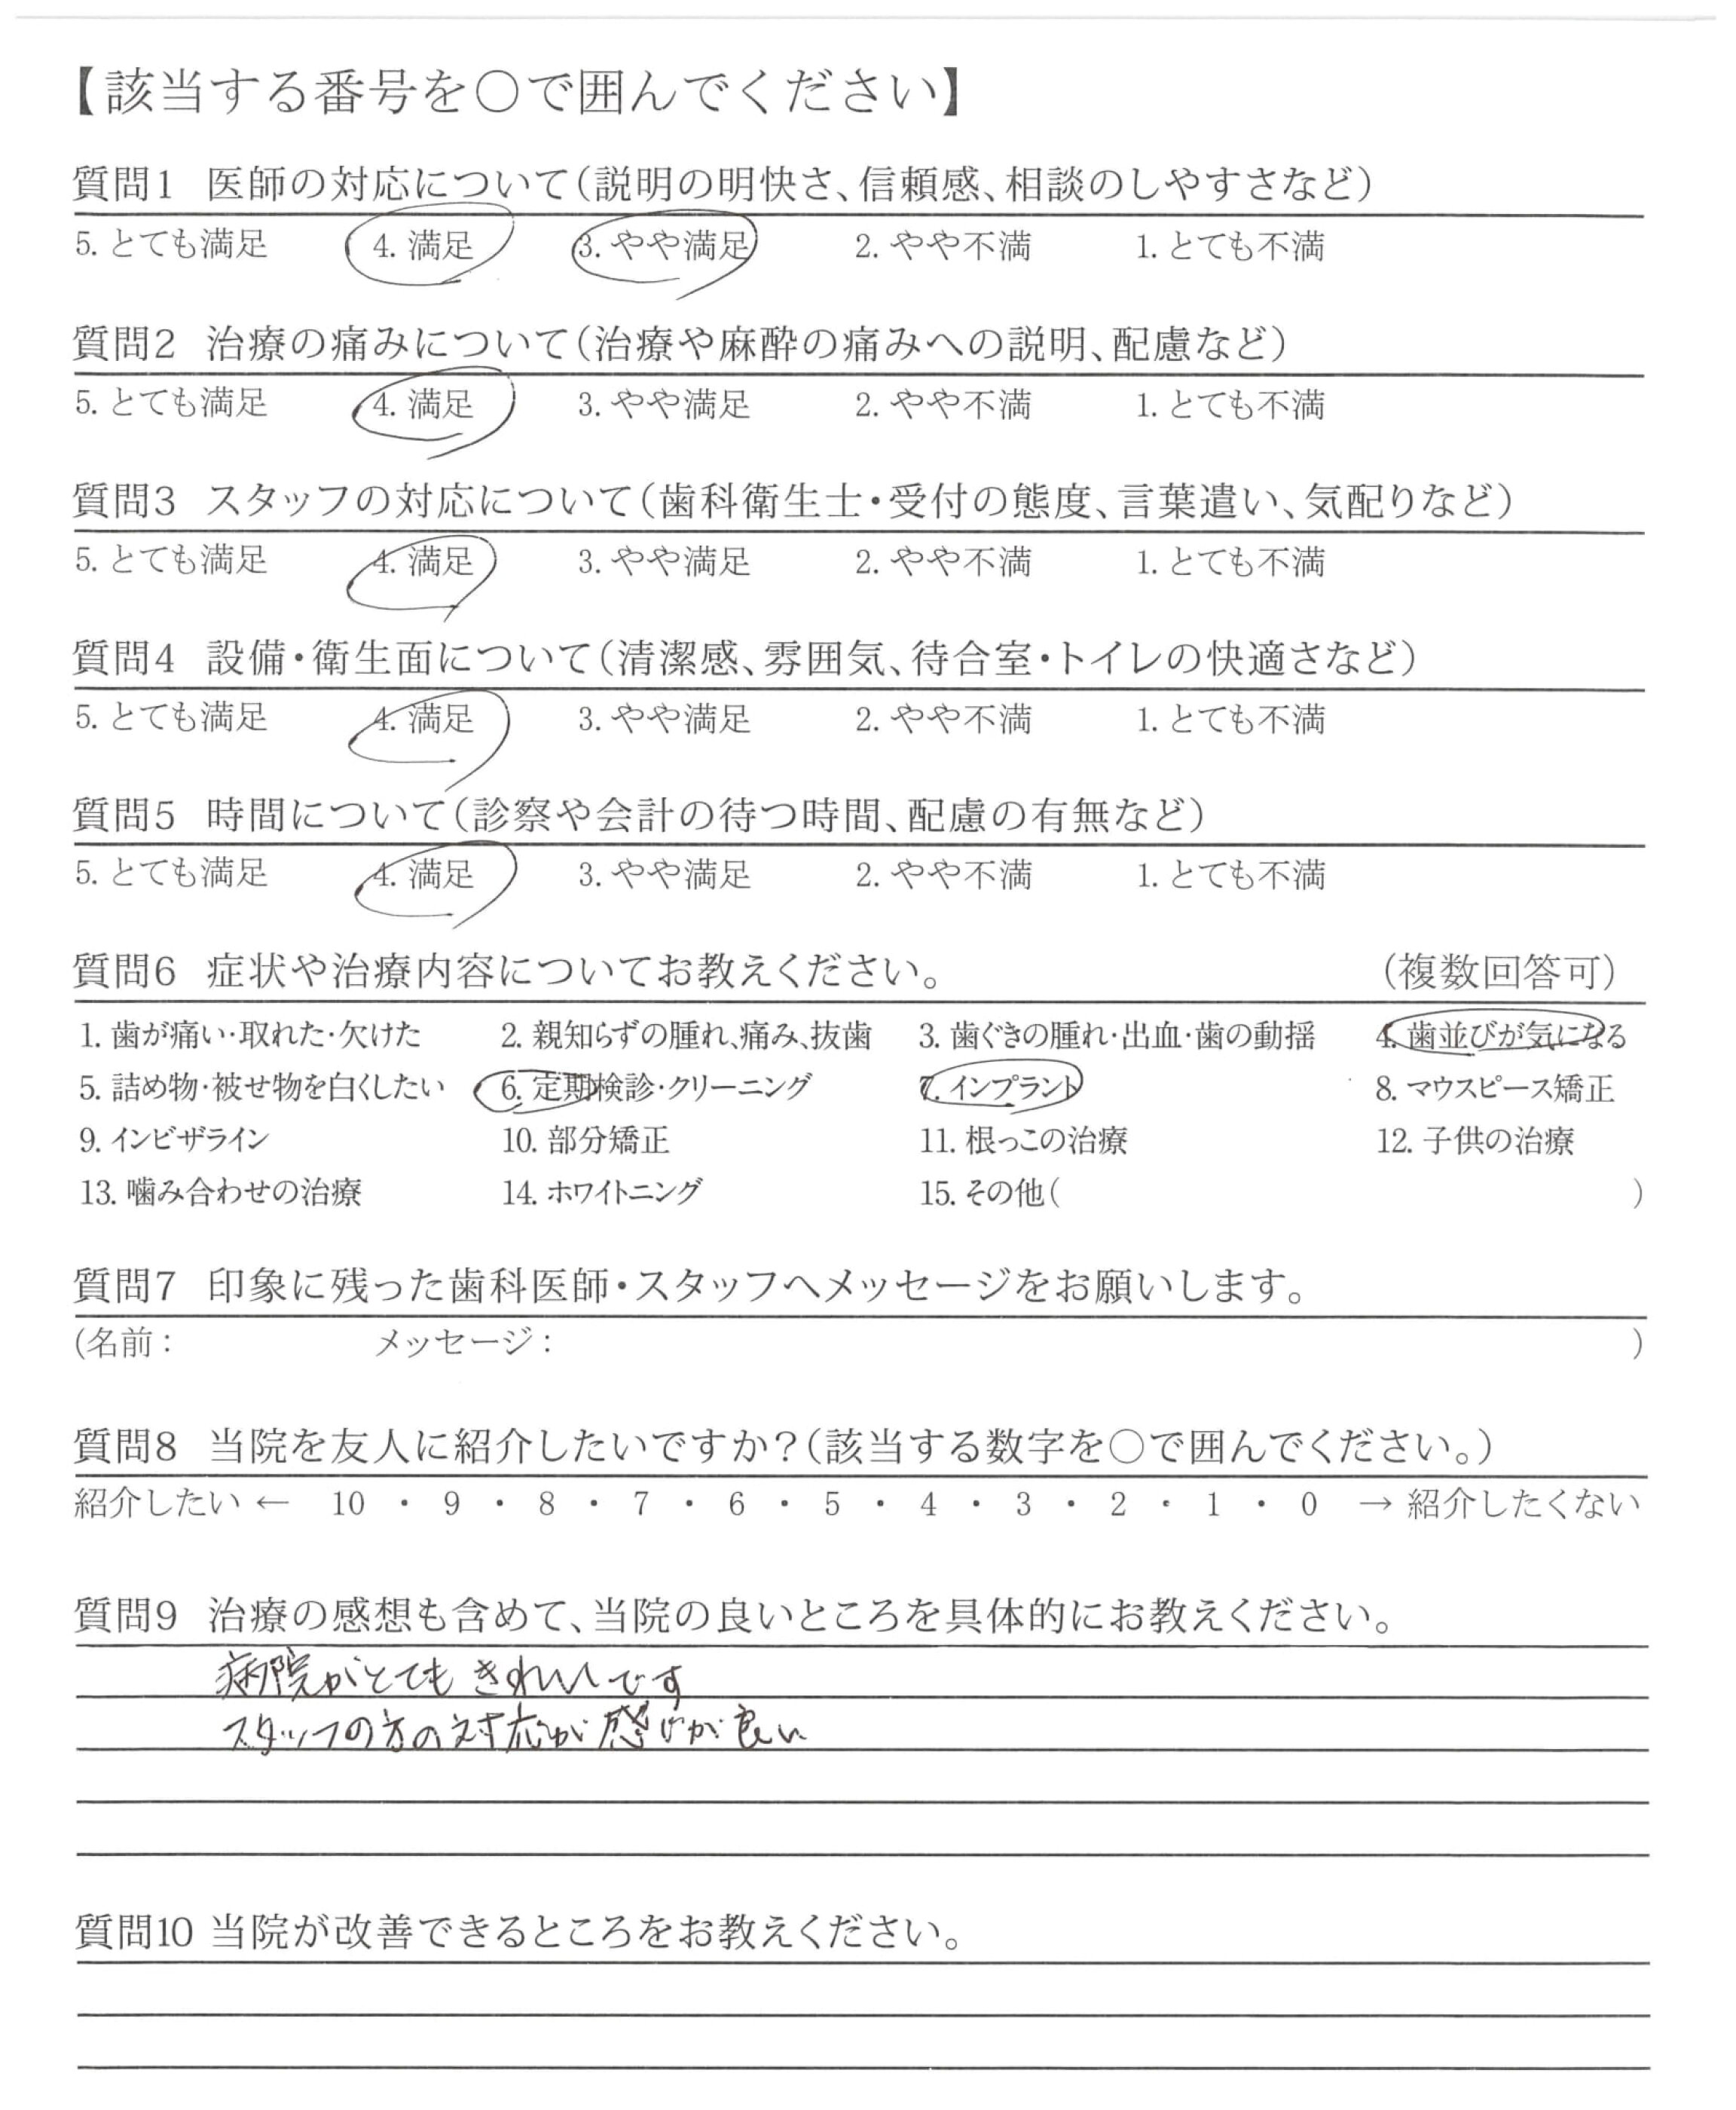 【該当する番号を○で囲んでください】
質問1 医師の対応について(説明の明快さ、信頼感、相談のしやすさなど)
5. とても満足 4. 満足 3. やや満足 2. やや不満 1. とても不満
質問2 治療の痛みについて(治療や麻酔の痛みへの説明、配慮など)
5. とても満足 4. 満足 3. やや満足 2. やや不満 1. とても不満
質問3 スタッフの対応について(歯科衛生士・受付の態度、言葉遣い、気配りなど)
5. とても満足 4. 満足 3. やや満足 2. やや不満 1. とても不満
質問4 設備・衛生面について(清潔感、雰囲気、待合室・トイレの快適さなど)
5. とても満足 4. 満足 3. やや満足 2. やや不満 1. とても不満
質問5 時間について(診察や会計の待つ時間、配慮の有無など)
5. とても満足 4. 満足 3. やや満足 2. やや不満 1. とても不満
質問6 症状や治療内容についてお教えください。 (複数回答可)
1. 歯が痛い・取れた・欠けた 2. 親知らずの腫れ、痛み、抜歯 3. 歯ぐきの腫れ・出血・歯の動揺 4. 歯並びが気になる
5. 詰め物・被せ物を白くしたい 6. 定期検診・クリーニング 7. インプラント 8. マウスピース矯正
9. インビザライン 10. 部分矯正 11. 根っこの治療 12. 子供の治療
13. 噛み合わせの治療 14. ホワイトニング 15. その他( )
質問7 印象に残った歯科医師・スタッフへメッセージをお願いします。
(名前: メッセージ: )
質問8 当院を友人に紹介したいですか?(該当する数字を○で囲んでください。)
紹介したい ← 10 ・ 9 ・ 8 ・ 7 ・ 6 ・ 5 ・ 4 ・ 3 ・ 2 ・ 1 ・ 0 → 紹介したくない
質問9 治療の感想も含めて、当院の良いところを具体的にお教えください。
病院がとてもきれいです
スタッフの方の対応が感じが良い
質問10 当院が改善できるところをお教えください。